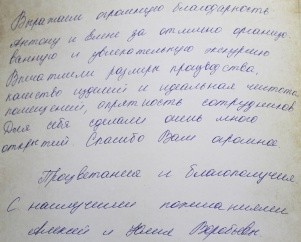 Выражаем огромную благодарность
Антону и Елене за отлично организо
ванную и увлекательную экскурсию
Впечатлили размеры производства,
качество изделий и идеальная чистота
помещений, опрятность сотрудников.
Для себя сделали очень много
открытий. Спасибо Вам огромное.
Процветания и благополучия.
С наилучшими пожеланиями
Алексей и Юлия